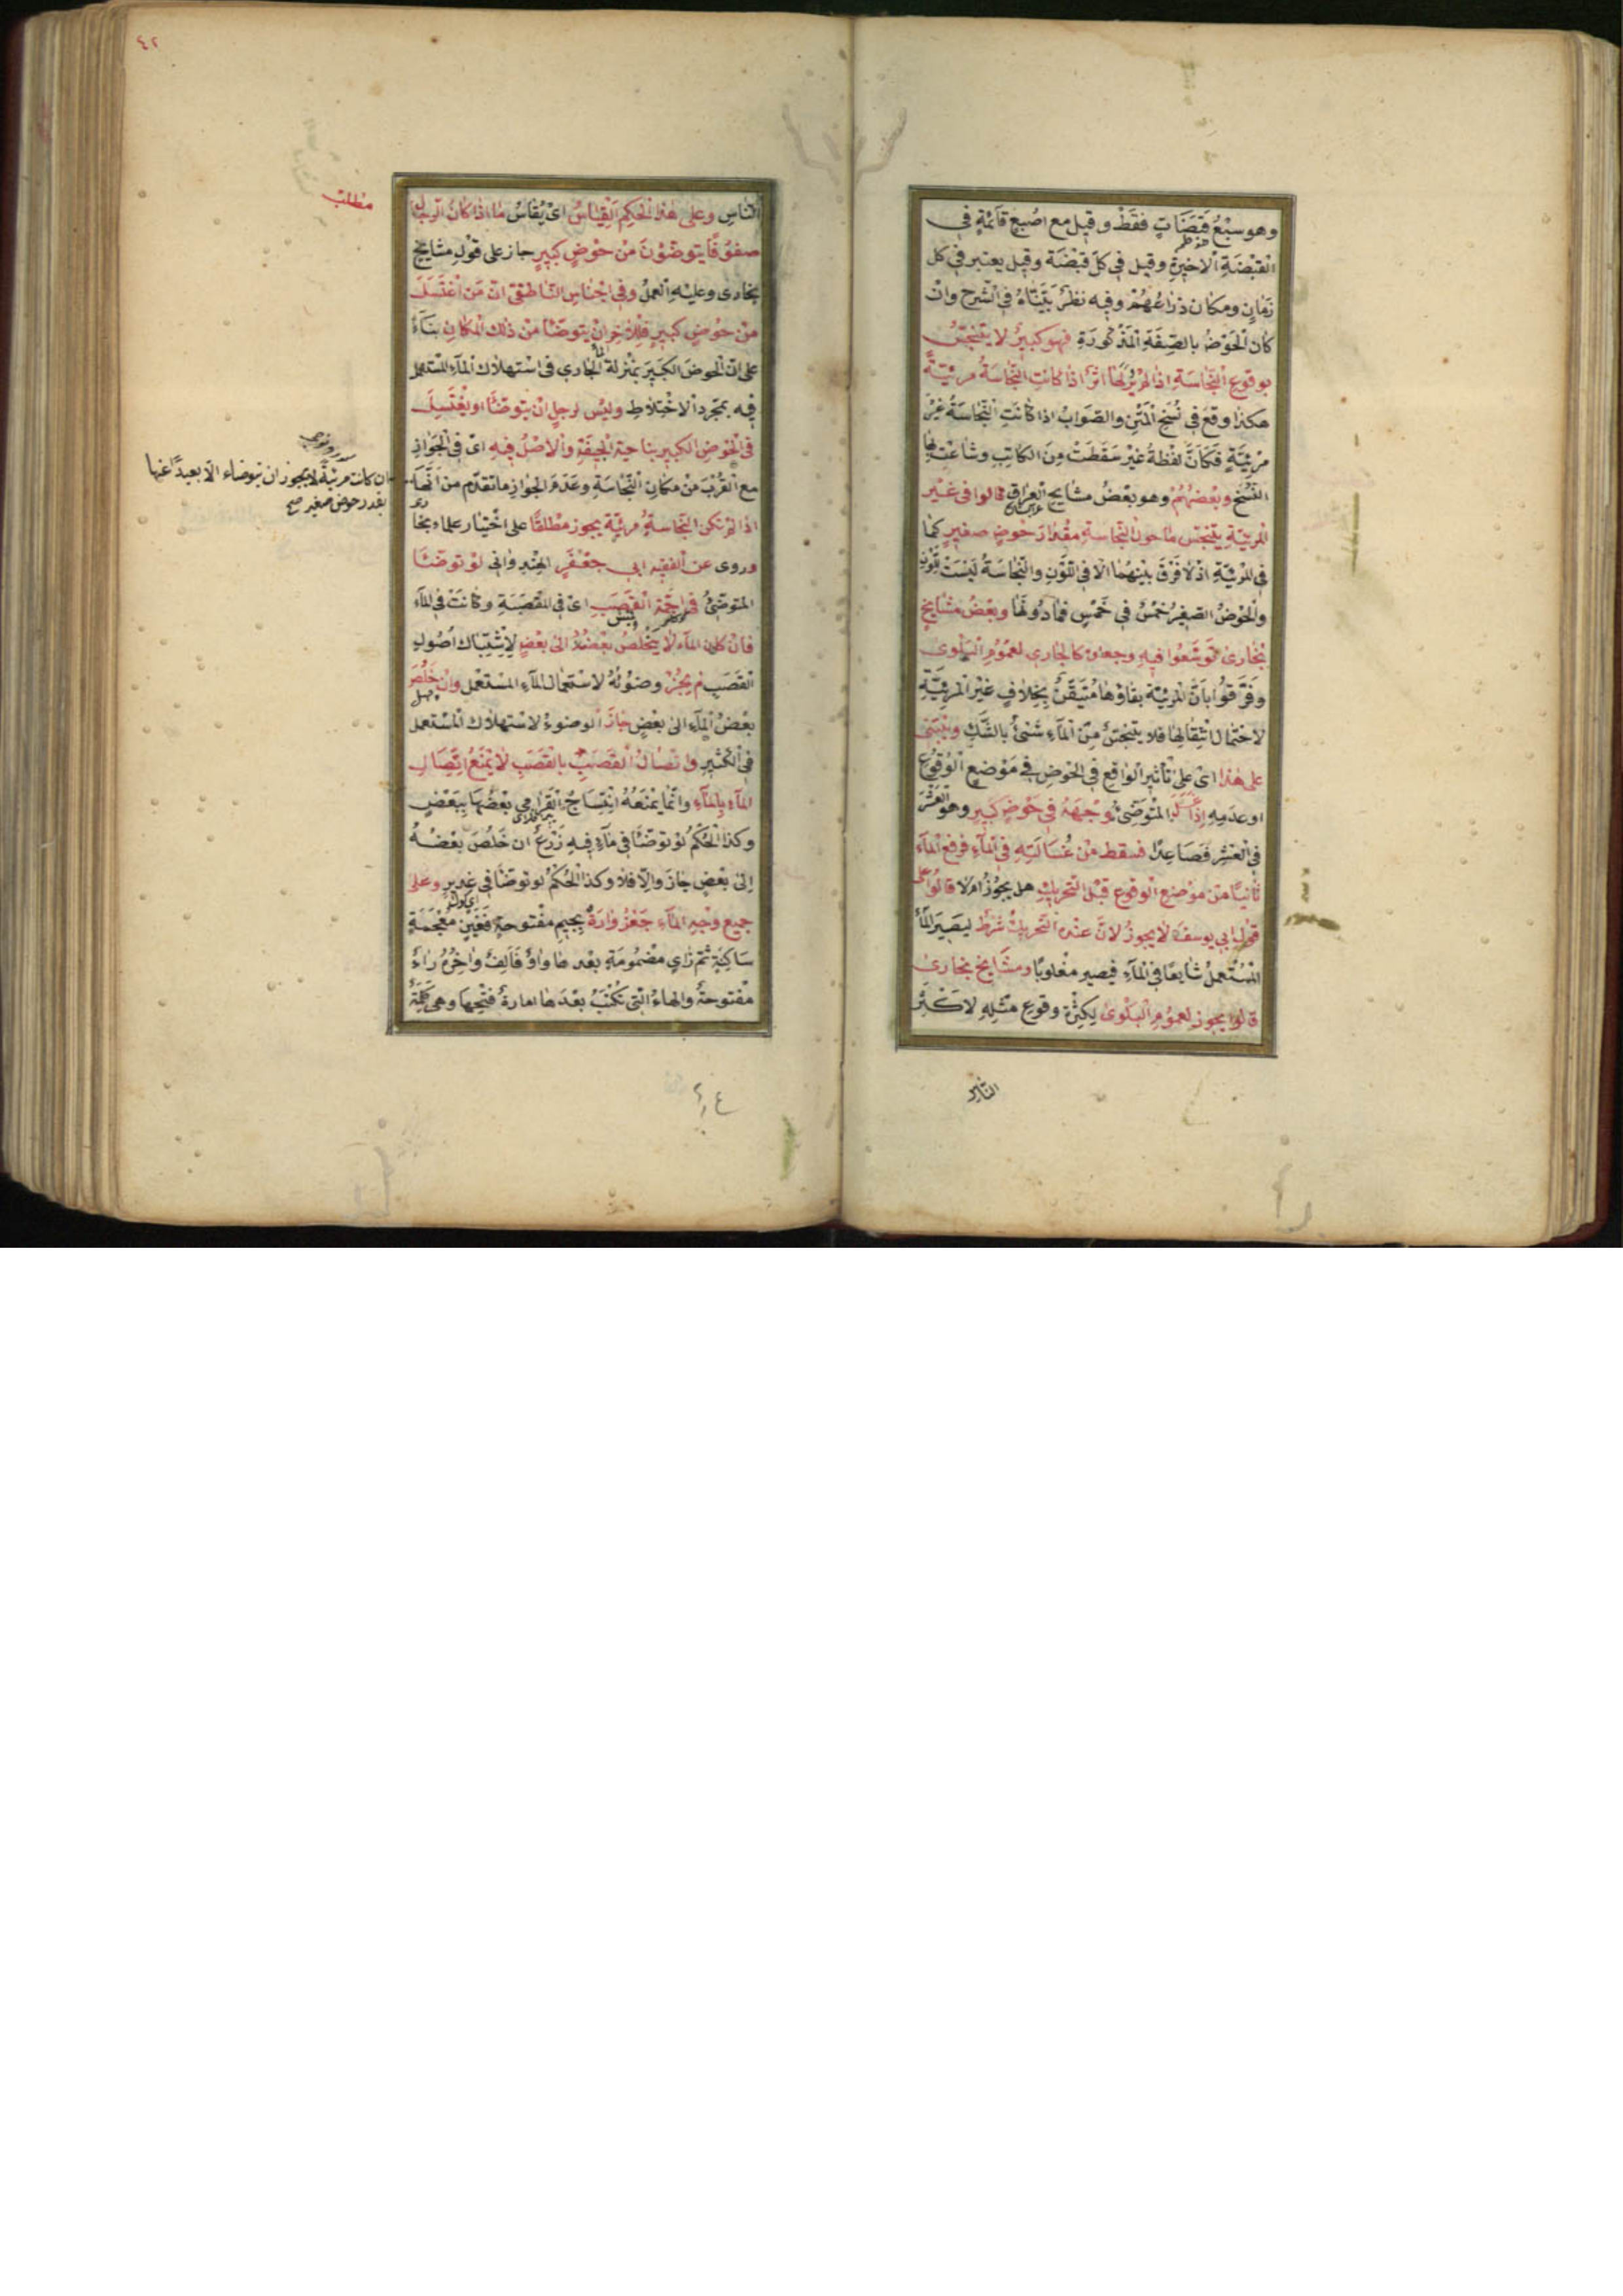 وهو سبْعُ قبَضَاتٍ فقَطْ وقيل مع اصْبعٍ قآئمةٍ في
القَبْضَةِ الاَخيرةِ وقيل في كلّ قبْضَة وقيل يعتبر في كل
زَمَانٍ ومكان ذرَاعُهُمْ وفيه نظرٌ بيَّنّاهُ في الشّرح وانْ
كان الْحَوْضُ بالصّفَةِ الْمَذْكُورَةِ فهو كبيرٌ لا يتَنَجّسُ
بوقوع النّجَاسَةِ اذا لم يُرَ لَهَا اثرٌ اذا كانتِ النّجَاسَةُ مرئيّةً
هكذا وقعَ في نُسَخِ الْمَتْنِ والصَوَابُ اذا كانَتِ النّجَاسَةُ غَيْرَ
مرْئِيَّةٍ فَكاَنَّ لفْظةَ غَيْرَ سَقَطَتْ مِنَ الكاتِبِ وشاعَتْ بِهَا
النُّسَخُ وبعْضُهُمْ وهو بعْضُ مشايخ العِراق قالوا في غيْر
المرئيّةِ يتَنَجّس ما حولَ النّجاسةِ مقْدارَ حَوْضٍ صغيرٍ كما
في المرْئيّةِ اذ لا فَرْقَ بيْنهُمَا الّا في اللَّوْنِ والنّجَاسَةُ ليْسَتْ بِلَوْنٍ
والحَوْضُ الصّغِيرُ خمْسٌ في خَمْسٍ فمَا دُونَهَا وبعْضُ مشايخ
بُخارى توَسَّعُوا فيهِ وجعلوه كالجاري لعمُوم الْبَلْوى
وفرَّقوُا باَنَّ المرئيّةَ بقاؤهَا مُتَيَقَّنٌ بِخِلافِ غيْرِ المرئيَّةِ
لاحْتمال انْتِقالِهَا فلا يتنجّسُ مِنَ المآءِ شئٌ بالشّكِّ ويَبْتَنى
على هذا اى على تأثير الواقع في الحَوْضِ في مَوْضع الْوُقوُع
او عدمهِ اِذَا غَسَلَ المتَوضّئُ وجْهَهُ في حَوْضٍ كبيرٍ وهو العَشْرُ
في العَشْرِ فَصَاعِدًا فسقط منْ غُسَالَتِهِ في المآءِ فرفع المآءَ
ثانيًا من موْضع الوقوع قبْل التّحريكِ هل يجُوزُ ام لا قالُوا على
قول ابي يوسفَ لا يجوزُ لانّ عنْده التّحريكَ شرْطٌ ليصيرَ المآءُ
الْمُسْتعملُ شايعًا في المآءِ فيصير مغْلوبًا ومشايخ بخارى
قالوا يجوز لعمُومِ الْبَلْوى لِكثرةِ وقوعِ مثلِهِ لاكْثرِ
النّاسِ
النّاسِ وعلى هذا الحكمِ القِيَاسُ اىْ يُقَاسُ ما اذا كان الرّجالُ
صفوُفًا يتوضّؤنَ مِنْ حَوْضٍ كبيرٍ جاز على قولِ مشايخ
بخارى وعليْهِ العملُ وفي اجْناسِ النّاطفيّ انّ مَن اغتَسَلَ
منْ حَوْضٍ كبيرٍ فلِلْاٰخرِ انْ يتوضّأ منْ ذلك المكانِ بنَآءً
على انّ الحوضَ الكبيرَ بمنْزِلة الجاري في اسْتهلاك المآءِ المستعمل
فيه بمجرّد الاخْتِلاطِ وليْس لرجلٍ انْ يتوضّأ او يغْتسِلَ
في الحوْضِ الكبير بناحيةِ الجيفةِ والاصْلُ فيه اىْ في الْجَوَازِ
مع القُرْبِ منْ مكانِ النّجَاسَةِ وعدَمِ الجوازِ ما تقدّم من اَنَّهَا
اذا لم تكن النّجَاسةُ مرئيّةً يجوز مطْلقًا على اخْتِيار علماءِ بخارى
وروى عن الفقيه ابي جعْفَرٍ الهِنْدِوَانى لوْ توَضّأ
المتوضّئُ في اجَمَةِ القَصَبِ اىْ في المقصَبَةِ وكانَتْ في المآءِ
فانْ كان المآء لا يخْلُصُ بعْضُهُ الى بعْضٍ لِاشْتِبَاك اُصُولِ
القصَبِ لم يجُزْ وضوُئُهُ لاسْتعمال المآءِ المسْتعْمل وانْ خَلُصَ
بعْضُ المآءِ الى بعْضٍ جازَ الوضوءُ لاستهلاك المسْتعمل
في الكثيرِ واتّصَالُ القصَبِ بالقَصَبِ لا يمْنَعُ اتِّصَالَ
المآءِ بالمآءِ وانّما يمْنَعُهُ انْتِسَاجُ القرَامِي بعْضُهَا بِبعْضٍ
وكذا الحُكْمُ لوْ توَضّأ في مآءٍ فيه زَرْعٌ ان خَلُصَ بعْضُهُ
الى بعْضٍ جازَ والّا فلا وكذا الحُكْمُ لو توضّأ في غديرٍ وعلى
جميع وجْهِ المآءِ جَغْزُوَارَةٌ بجيمٍ مفْتوحةٍ فَغَيْنٍ مُعْجَمَةٍ
سَاكِنةٍ ثم زايٍ مضْمُومَةٍ بعْدها واوٌ فاَلِفٌ واٰخِرُهُ راءٌ
مفْتوحةٌ والهاءُ الّتي تكْتَبُ بعْدَها امارةُ فتْحِها وهي كلِمَةٌ
مطلب
ان كانت مرئيةً لا يجوز ان يتوضاء الّا بعيدًا عنها
بقدر حوض صغير صح
٤٢